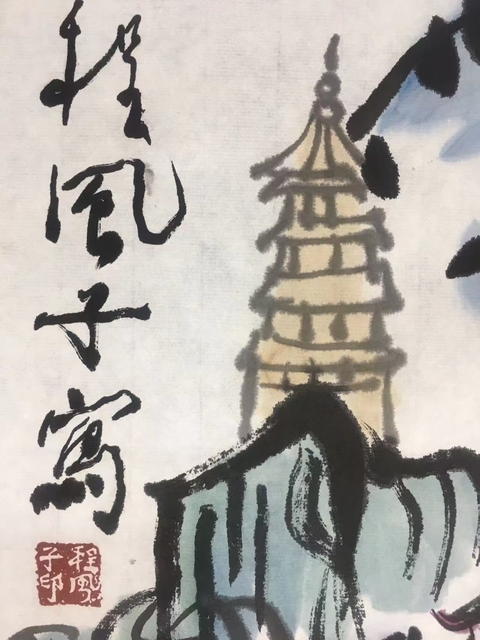 程風子寫
程風子印